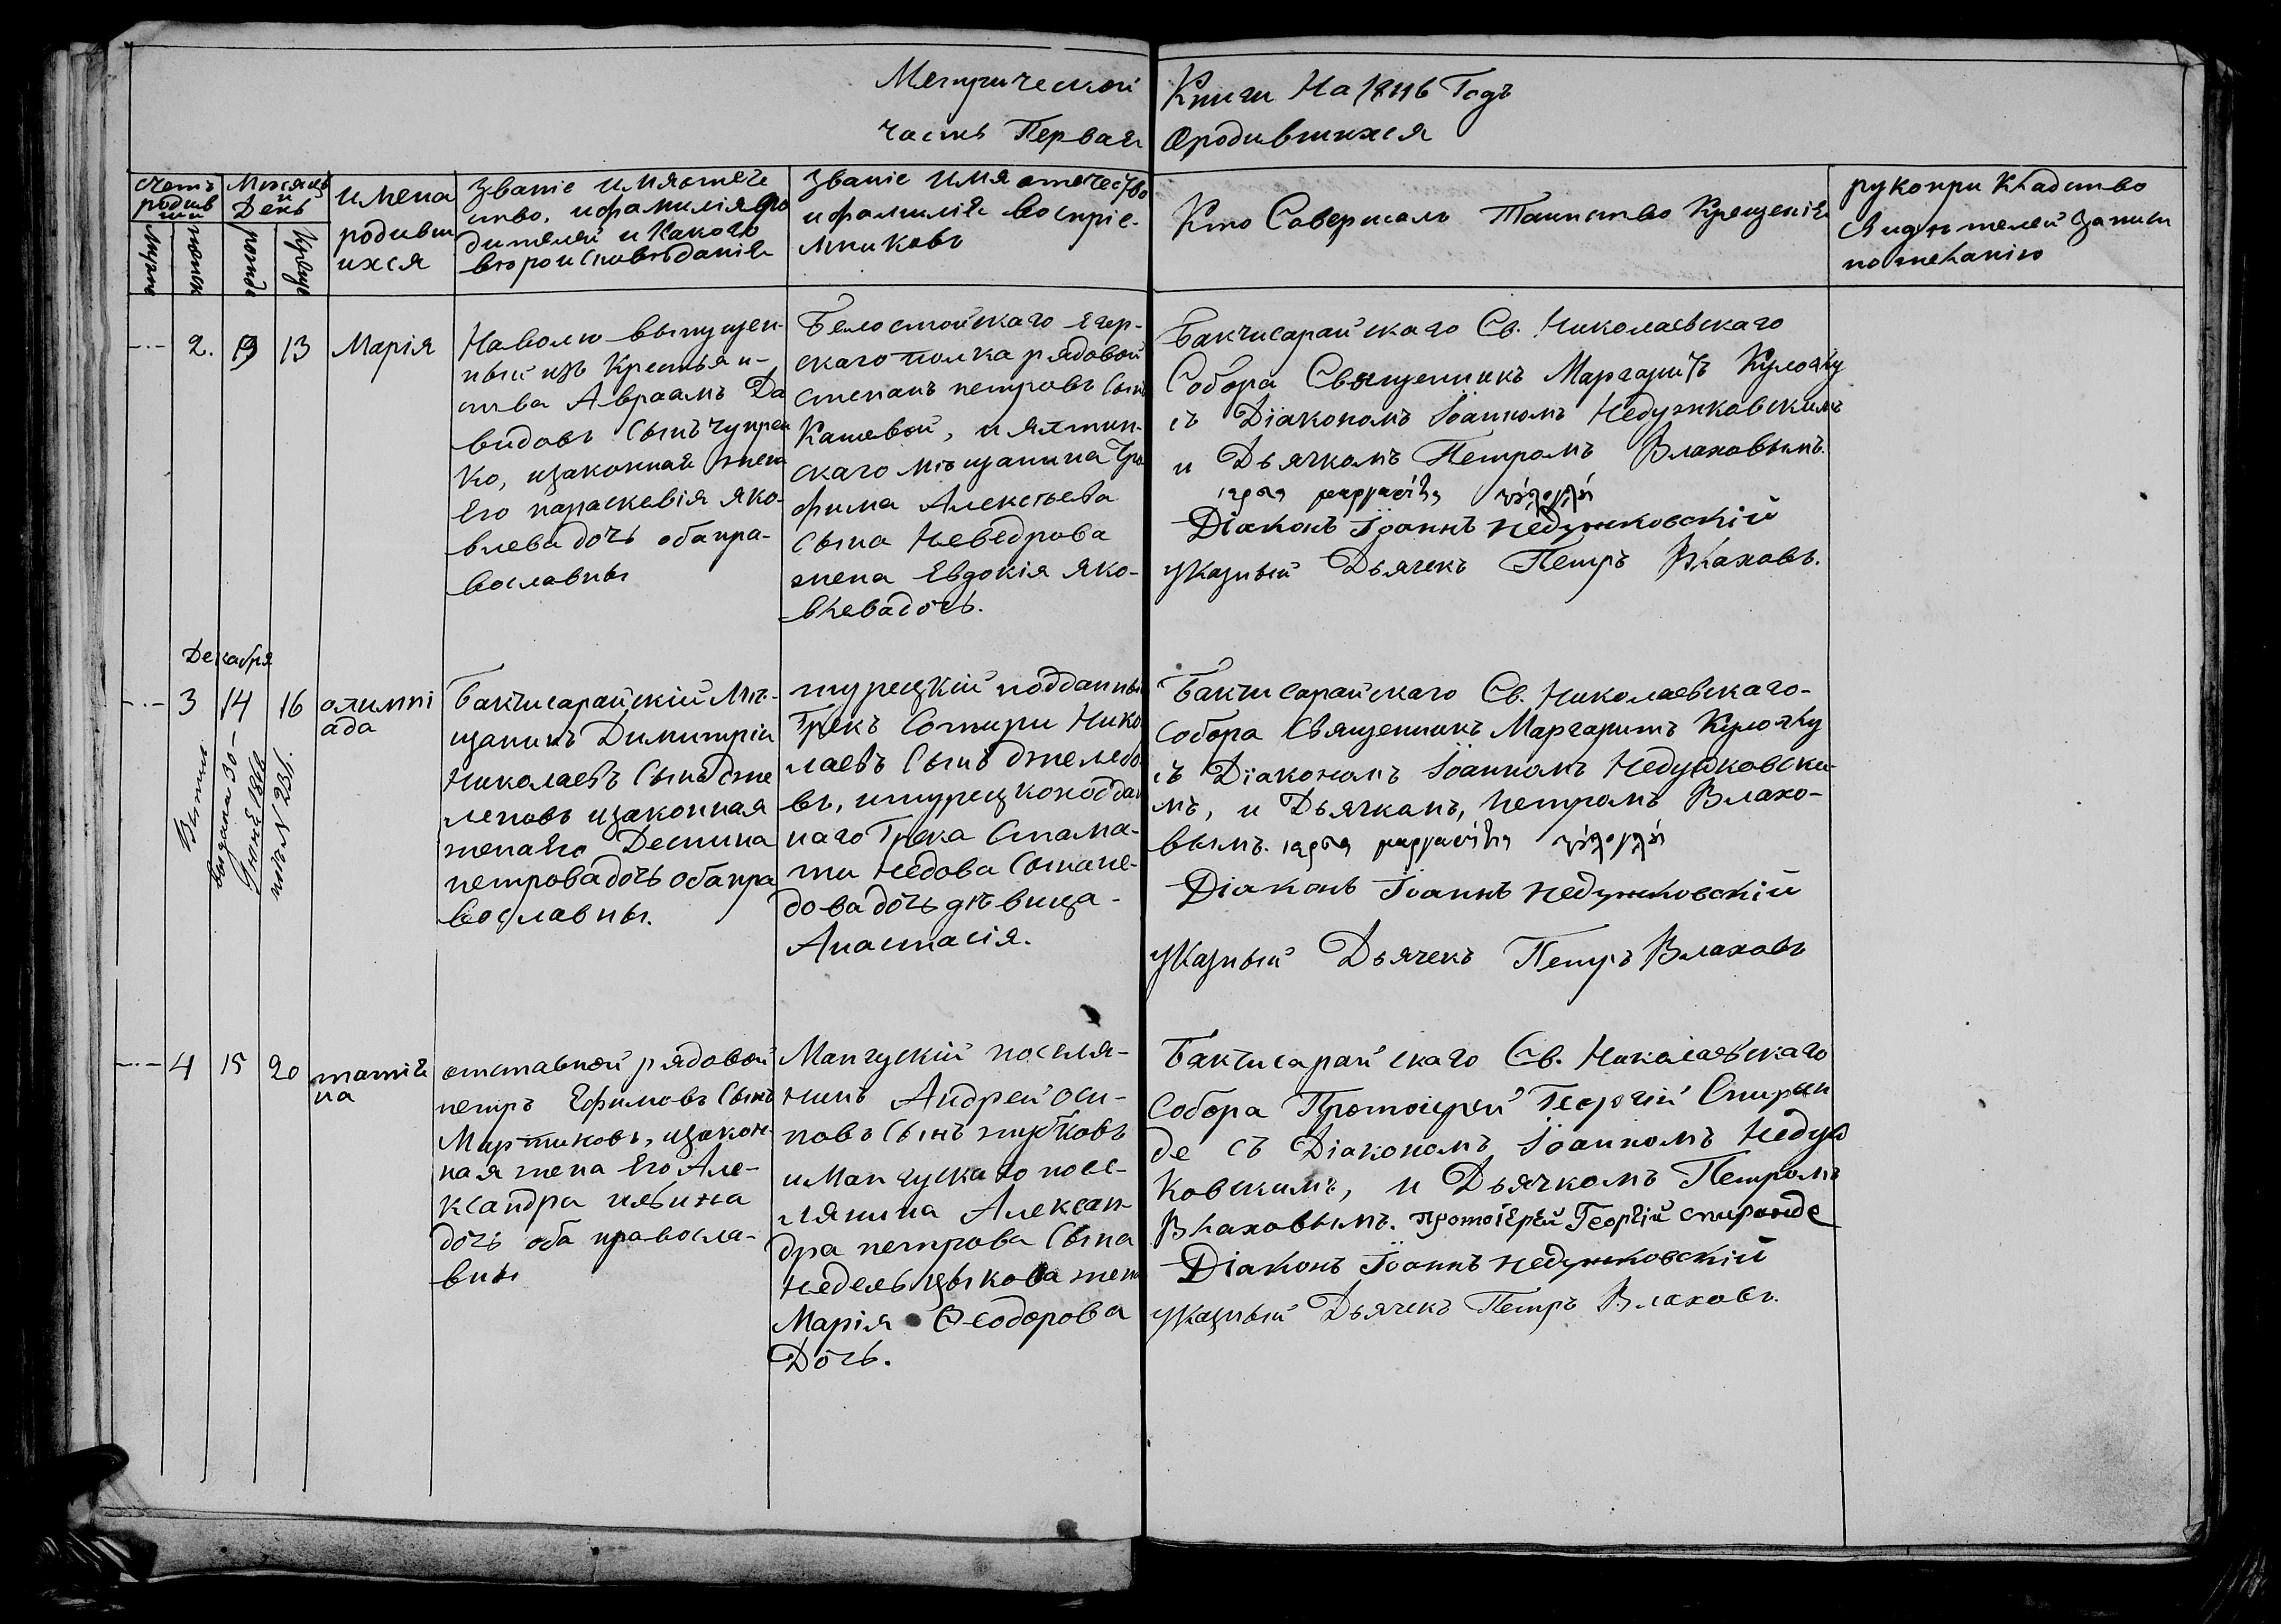 Метрической Книги На 1846 Годъ
часть Первая О родившихся
счетъ родив ши
Мѣсяцъ и День
имена родивш ихся
Званіе имя отече
ство, и фамилія Ро
дителей и Какого
вѣроисповѣданія
Званіе имя отечество
и фамилія воспріе-
мниковъ
Кто Совершалъ Таинство Крещенія
рукоприкладство
Свидѣтелей записи
по желанію
2. 13 13 Марія
На волю выпущен-
ный изъ Крестьян-
ства Авраамъ Да
видовъ Сынъ Чупрен
ко, изаконная жена
Его параскевія Яко-
влева дочь оба пра-
вославны
Белостойскаго Егер-
скаго полка рядовой
степанъ петровъ Сынъ
Кашевой, и ялтин-
скаго мѣщанина Тро
фима Алексѣева
Сына Неведрова
жена Евдокія Яко-
влева дочь.
Бакчисарайскаго Св. Николаевскаго
Собора Священникъ Маргаритъ
съ Діакономъ Іоанномъ Недужковскимъ
и Дьячкомъ Петромъ Влаховымъ.
Діаконъ Іоаннъ Недужковскій
указный Дьячекъ Петръ Влаховъ.
Декабря
3 14 16 олимпі
ада
выдана 30
Іюня 1866
подъ N 231.
Бакчисарайскій Мѣ-
щанинъ Димитрій
Николаевъ Сынъ дже
леповъ изаконная
жена Его Деспина
петрова дочь оба пра
вославны.
турецкій подданны
Грекъ Сотири Нико
лаевъ Сынъ
въ, итурецкоподдан
наго Грека Стама-
ти Недова
дова дочь дѣвица-
Анастасія.
Бакчисарайскаго Св. Николаевскаго-
Собора Священникъ Маргаритъ
съ Діакономъ Іоанномъ Недужковски-
мъ, и Дьячкамъ, петромъ Влахо-
вымъ.
Діаконъ Іоаннъ Недужковскій
указный Дьячекъ Петръ Влаховъ
4 15 20 татіа
на
отставной рядовой
петръ Ефимовъ Сынъ
Мартиковъ, изакон-
ная жена Его Але-
ксандра ильина
дочь оба правосла-
вны
Мангускій поселя-
нинъ Андрей оси-
повъ Сынъ
и Мангускаго посе-
лянина Алексан-
дра петрова Сына
жена
Марія Ѳеодорова
Дочь.
Бакчисарайскаго Св. Николаевскаго
Собора Протоіерей Георгій Спиран
де съ Діакономъ Іоанномъ Недуж
ковскимъ, и Дьячкомъ Петромъ
Влаховымъ. протоіерей Георгій спиранде
Діаконъ Іоаннъ Недужковскій
указный Дьячекъ Петръ Влаховъ.